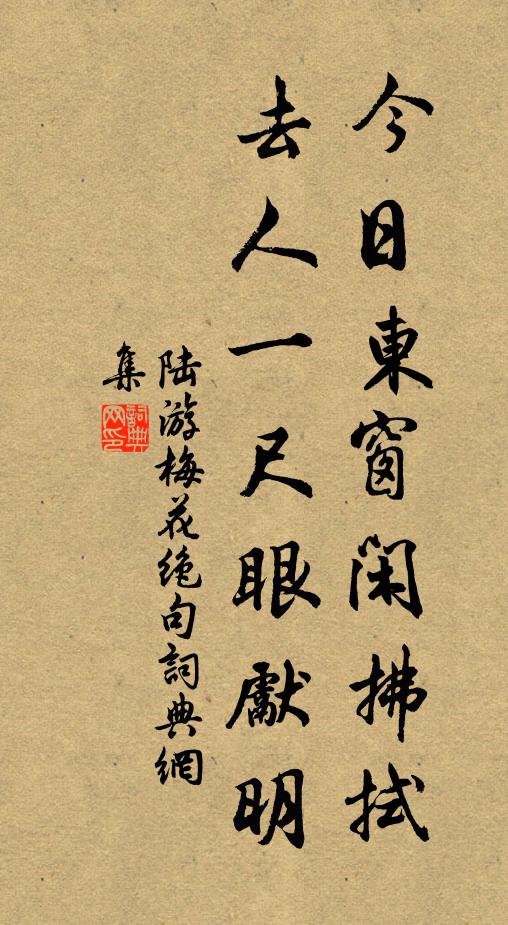 今日東窗閑拂拭
去人一尺眼獻明
陸游梅花绝句詞典網
集
詞典
网印